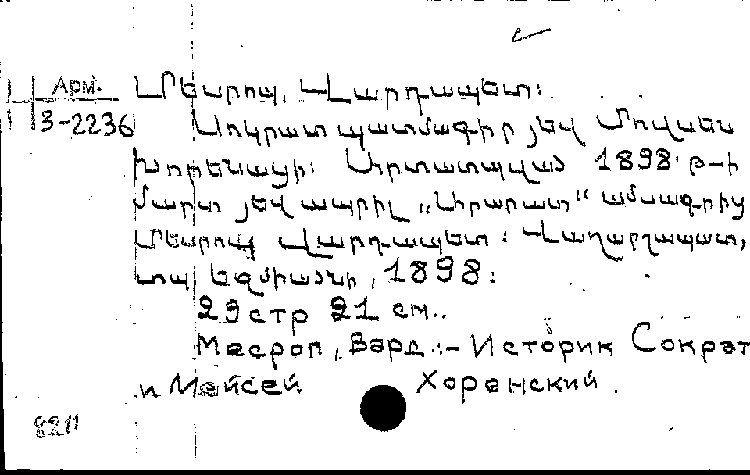 Арм.
3-2236
Մեսրոպ, Վարդապետ:
Սոկրատ պատմագիր յեվ Մովսես
Խորենացի: Արտատպված 1898 թ-ի
մարտ յեվ ապրիլ „Արարատ“ ամսագրից
Մեսրոպ Վարդապետ: Վաղարշապատ,
տպ. Եջմիածնի, 1898:
29 стр 21 см.
Месроп, Вард. :- Историк Сократ
и Мойсей Хоренский.
8211